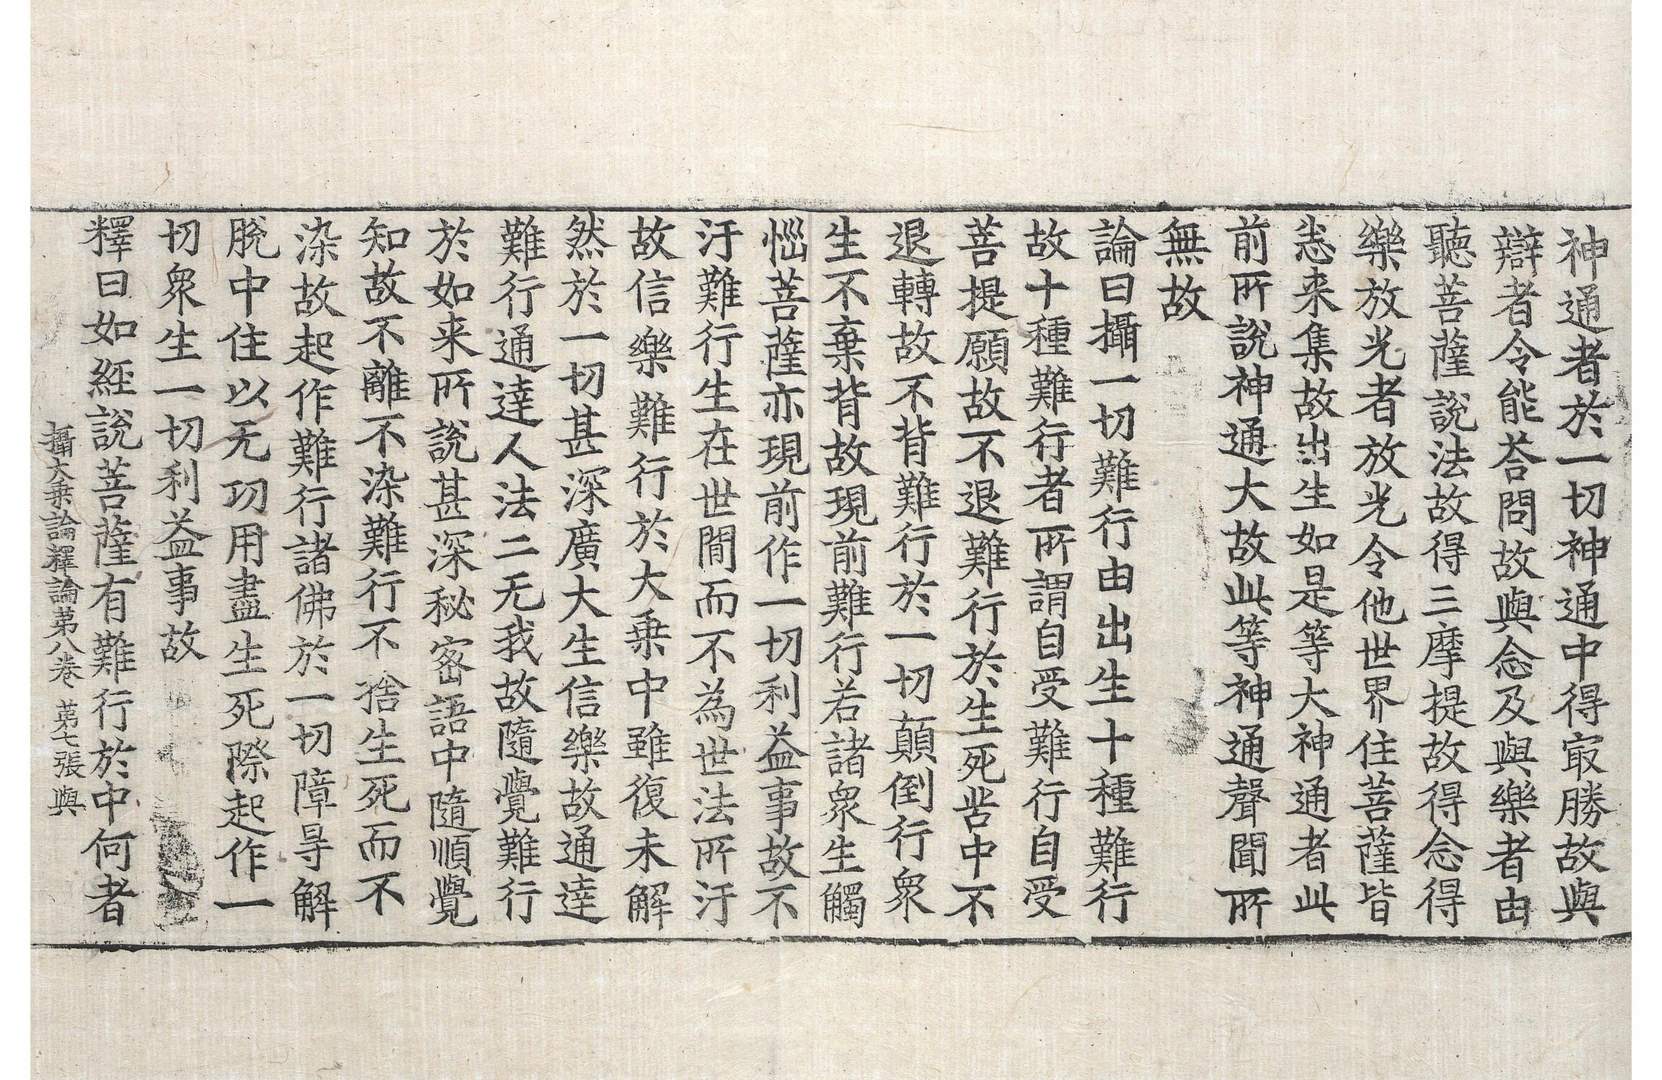 神通者於一切神通中得㝡勝故與
辯者令能荅問故與念及與樂者由
聽菩薩說法故得三摩提故得念得
樂放光者放光令他世界住菩薩皆
悉来集故出生如是等大神通者此
前所說神通大故此等神通聲聞所
無故
論曰攝一切難行由出生十種難行
故十種難行者所謂自受難行自受
菩提願故不退難行於生死苦中不
退轉故不背難行於一切顛倒行衆
生不棄背故現前難行若諸衆生觸
惱菩薩亦現前作一切利益事故不
汙難行生在世間而不為世法所汙
故信樂難行於大乗中雖復未解
然於一切甚深廣大生信樂故通達
難行通達人法二无我故隨覺難行
於如来所說甚深秘密語中隨順覺
知故不離不染難行不捨生死而不
染故起作難行諸佛於一切障㝵解
脫中住以无功用盡生死際起作一
切衆生一切利益事故
釋曰如経說菩薩有難行於中何者
攝大乗論釋論苐八卷 苐七張 與